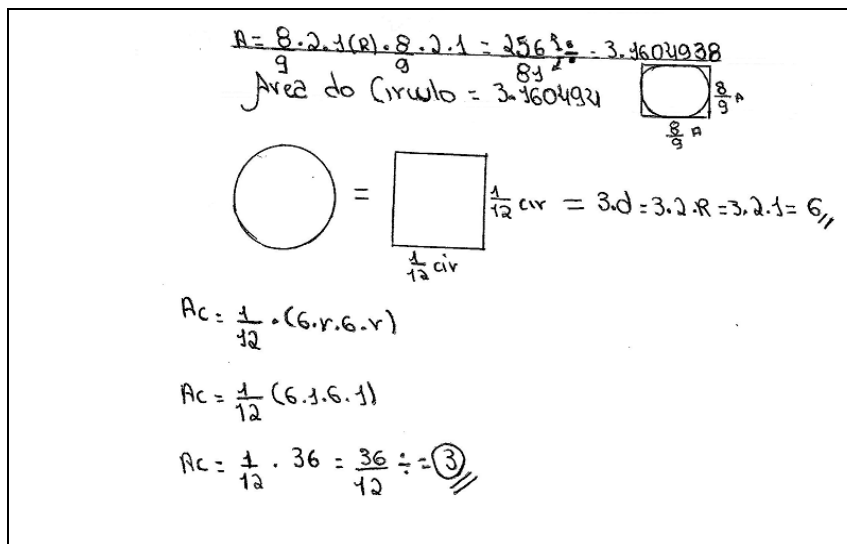 A = 8/9 . 2 . 1(R) . 8/9 . 2 . 1 = 256/81 1/2 ÷ = 3.1604938
Area do Circulo = 3.1604921
8/9 A
8/9 A
= 1/12 cir = 3.d = 3.2.R = 3.2.1 = 6
1/12 cir
Ac = 1/12 . (6.r.6.r)
Ac = 1/12 (6.1.6.1)
Ac = 1/12 . 36 = 36/12 ÷ = 3